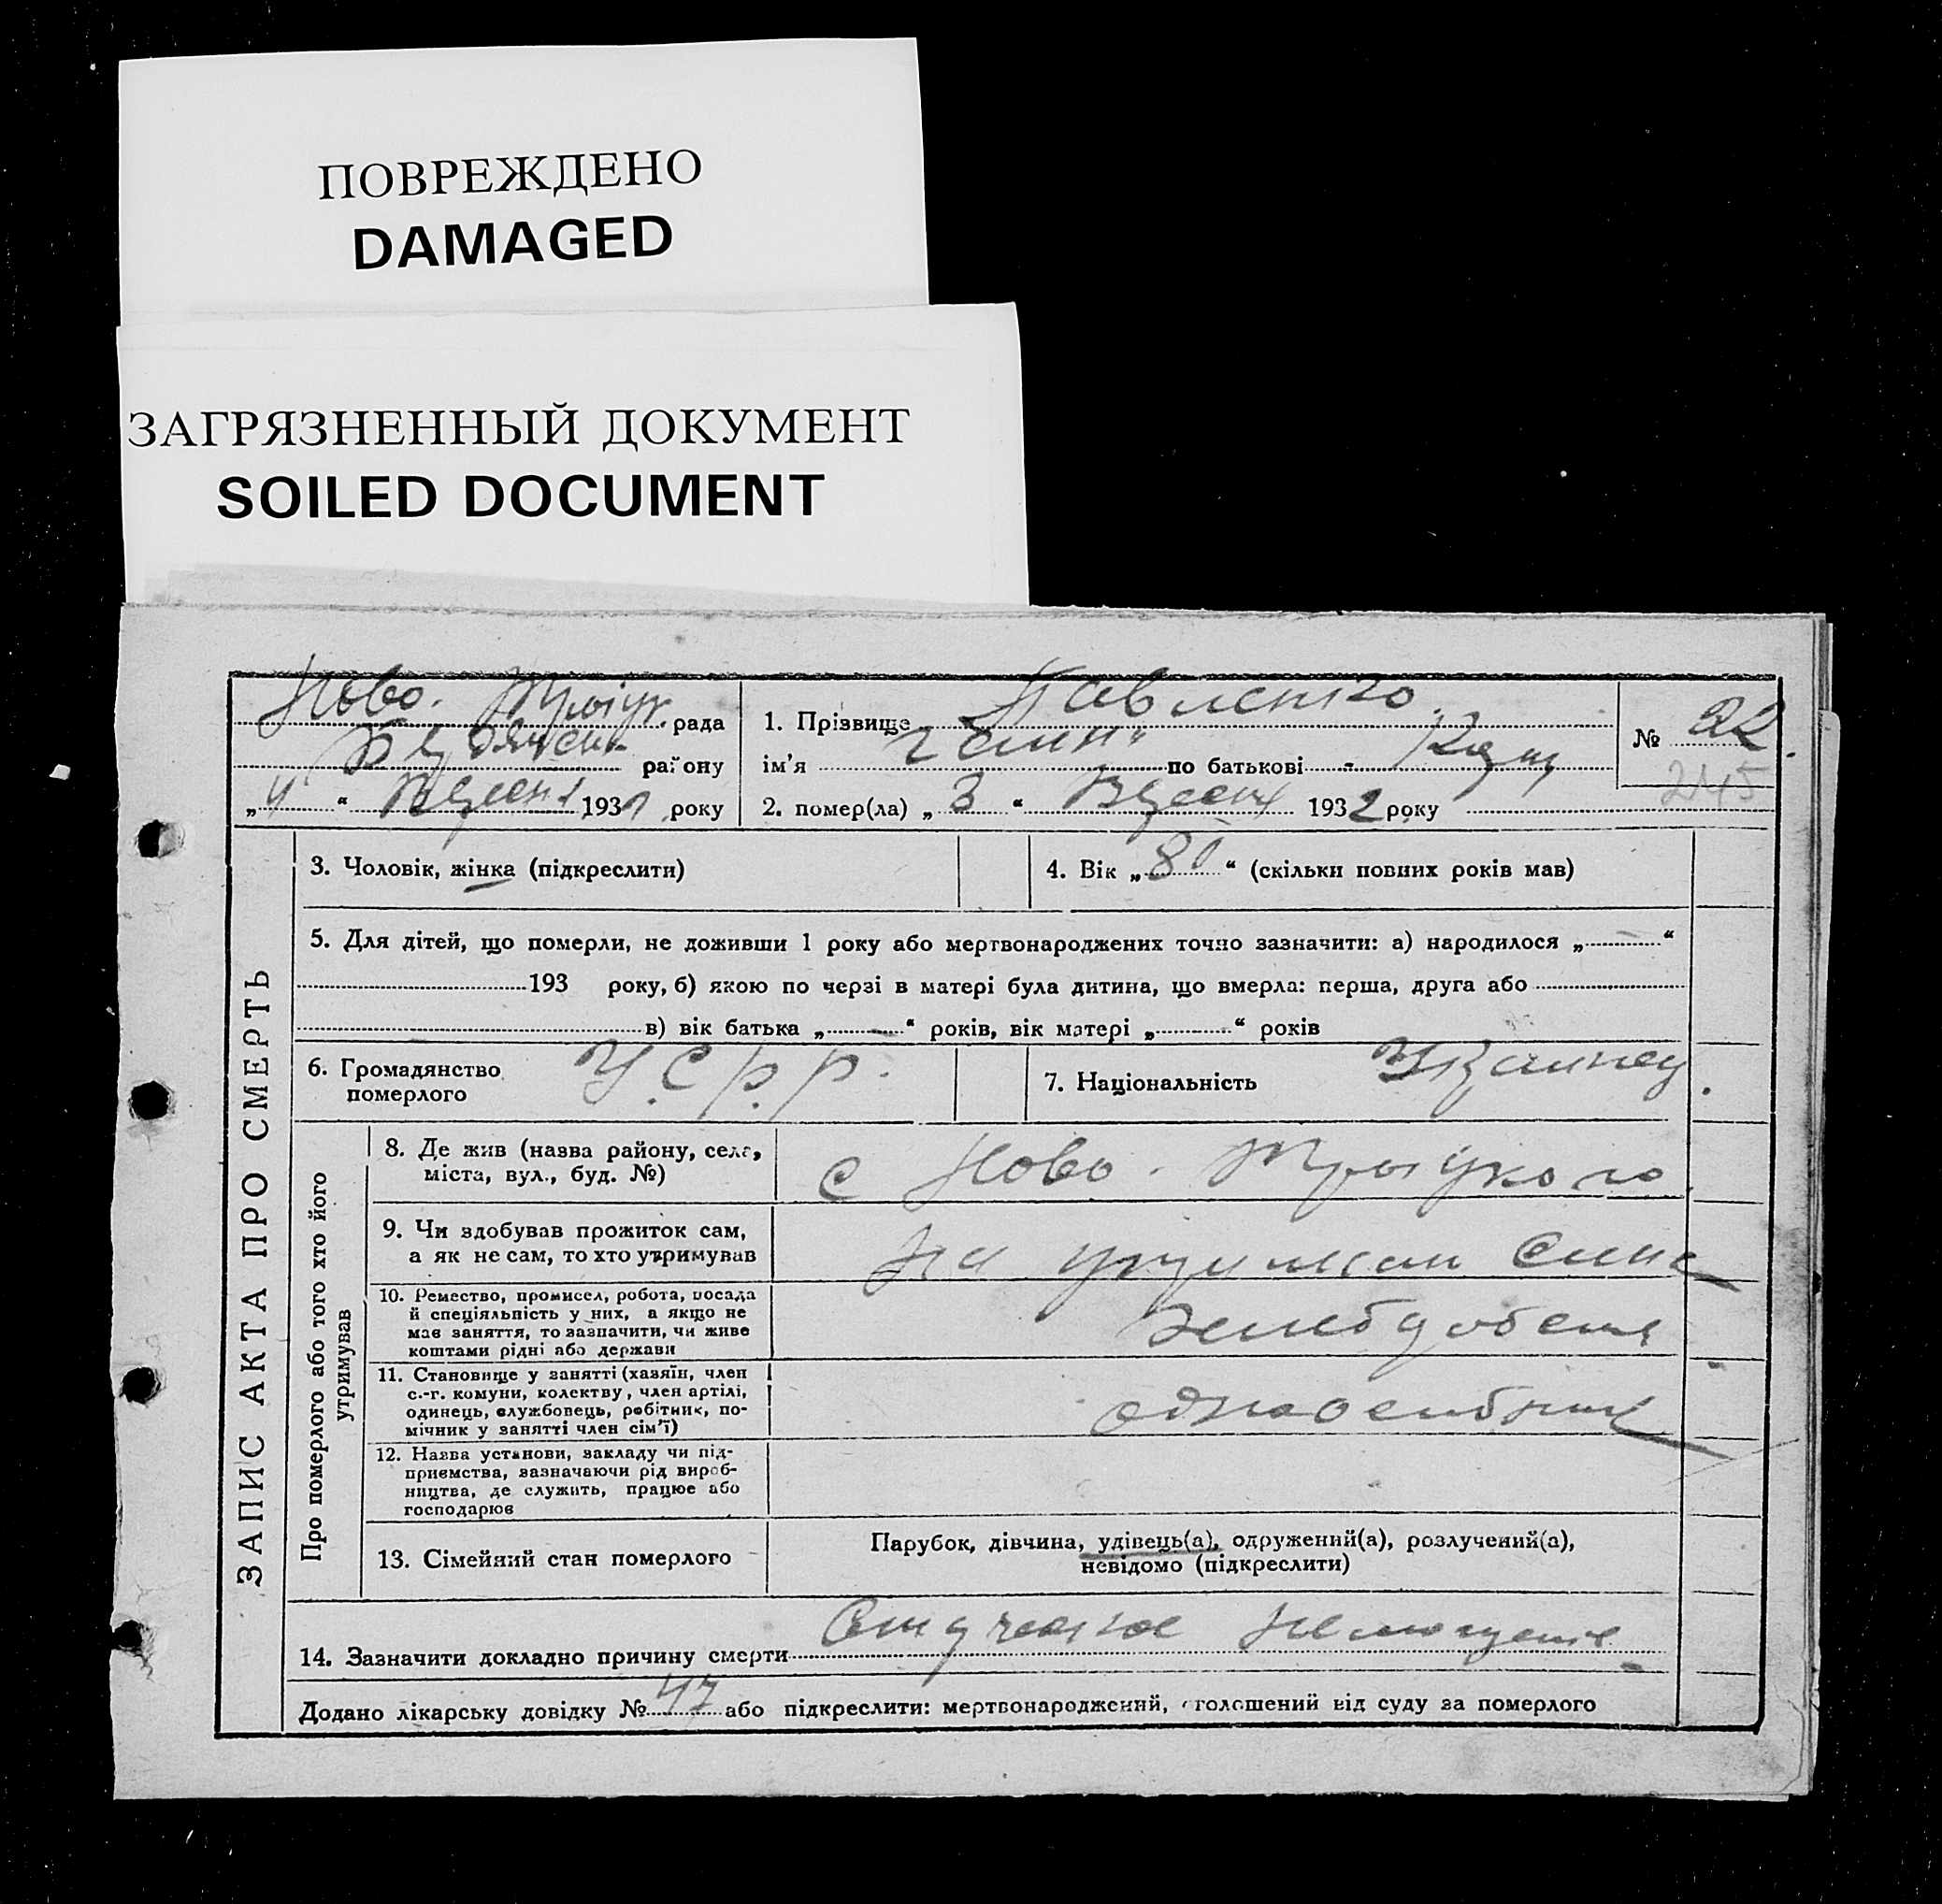 ПОВРЕЖДЕНО
DAMAGED
ЗАГРЯЗНЕННЫЙ ДОКУМЕНТ
SOILED DOCUMENT
Ново. рада
району
„4“ 193 року
1. Прізвище Павленко
ім'я по батькові -
2. помер(ла) „3“ 1932 року
№ 22
245
ЗАПИС АКТА ПРО СМЕРТЬ
3. Чоловік, жінка (підкреслити)
4. Вік „80“ (скільки повних років мав)
5. Для дітей, що померли, не доживши 1 року або мертвонароджених точно зазначити: а) народилося „—“
193 року, б) якою по черзі в матері була дитина, що вмерла: перша, друга або
в) вік батька „—“ років, вік матері „—“ років
6. Громадянство
померлого
У.С.Р.Р.
7. Національність
Про померлого або того хто його
утримував
8. Де жив (назва району, села,
міста, вул., буд. №)
с Ново.
9. Чи здобував прожиток сам,
а як не сам, то хто утримував
на сина
10. Ремество, промисел, робота, посада
й спеціяльність у них, а якщо не
мав заняття, то зазначити, чи живе
коштами рідні або держави
11. Становище у занятті (хазяїн, член
с.-г. комуни, колективу, член артілі,
одинець, службовець, робітник, по-
мічник у занятті член сім'ї)
12. Назва установи, закладу чи під-
приємства, зазначаючи рід вироб-
ництва, де служить, працює або
господарює
13. Сімейний стан померлого
Парубок, дівчина, удівець(а), одружений(а), розлучений(а),
невідомо (підкреслити)
14. Зазначити докладно причину смерти
Додано лікарську довідку № 47 або підкреслити: мертвонароджений, оголошений від суду за померлого